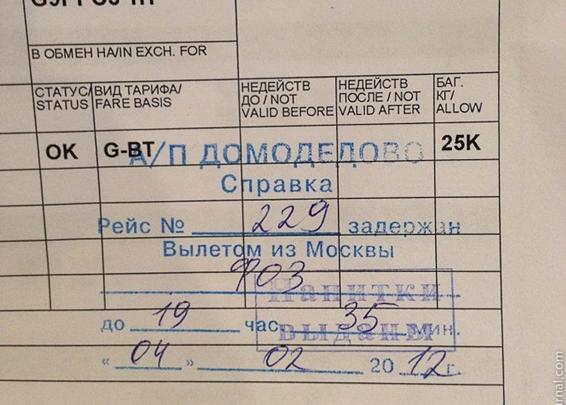 В ОБМЕН НА/IN EXCH. FOR
СТАТУС/ ВИД ТАРИФА/ НЕДЕЙСТВ НЕДЕЙСТВ БАГ.
STATUS FARE BASIS ДО / NOT ПОСЛЕ / NOT КГ/
VALID BEFORE VALID AFTER ALLOW
OK G-BT 25K
А/П ДОМОДЕДОВО
Справка
Рейс № 229 задержан
Вылетом из Москвы
Напитки
до 19 час. 35 мин.
выданы
« 04 » 02 2012 г.